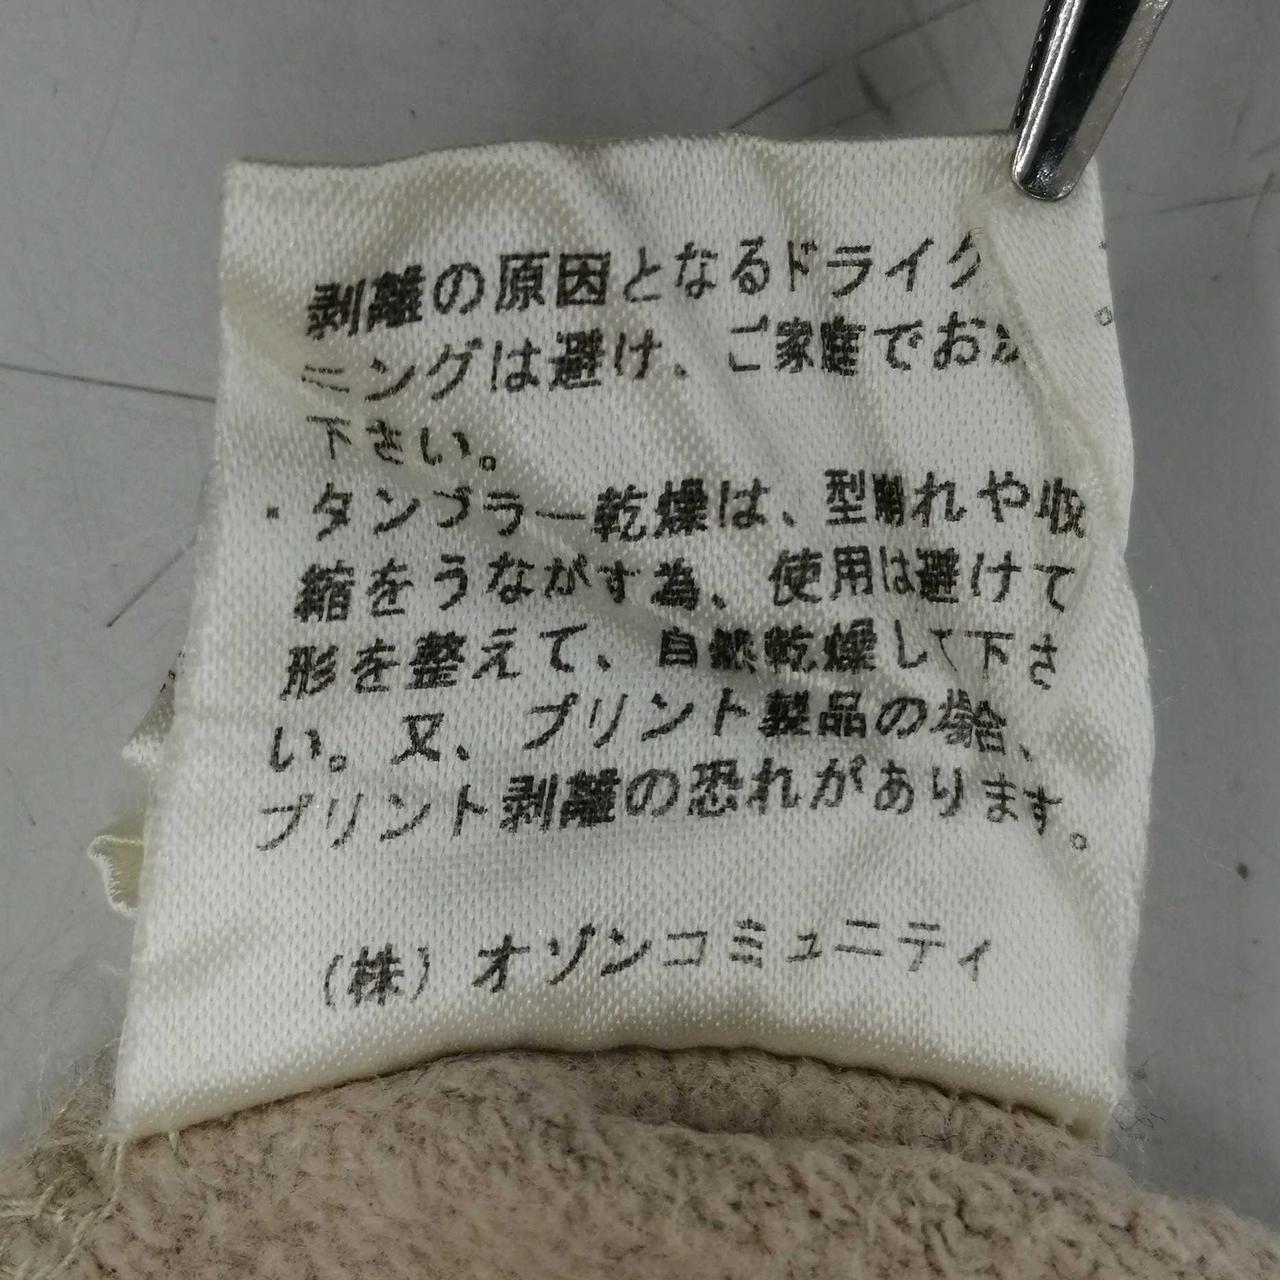 剥離の原因となるドライク
ニングは避け、ご家庭でお
下さい。
・タンブラー乾燥は、型崩れや収
縮をうながす為、使用は避けて
形を整えて、自然乾燥して下さ
い。又、プリント製品の場合、
プリント剥離の恐れがあります。
(株)オゾンコミュニティ